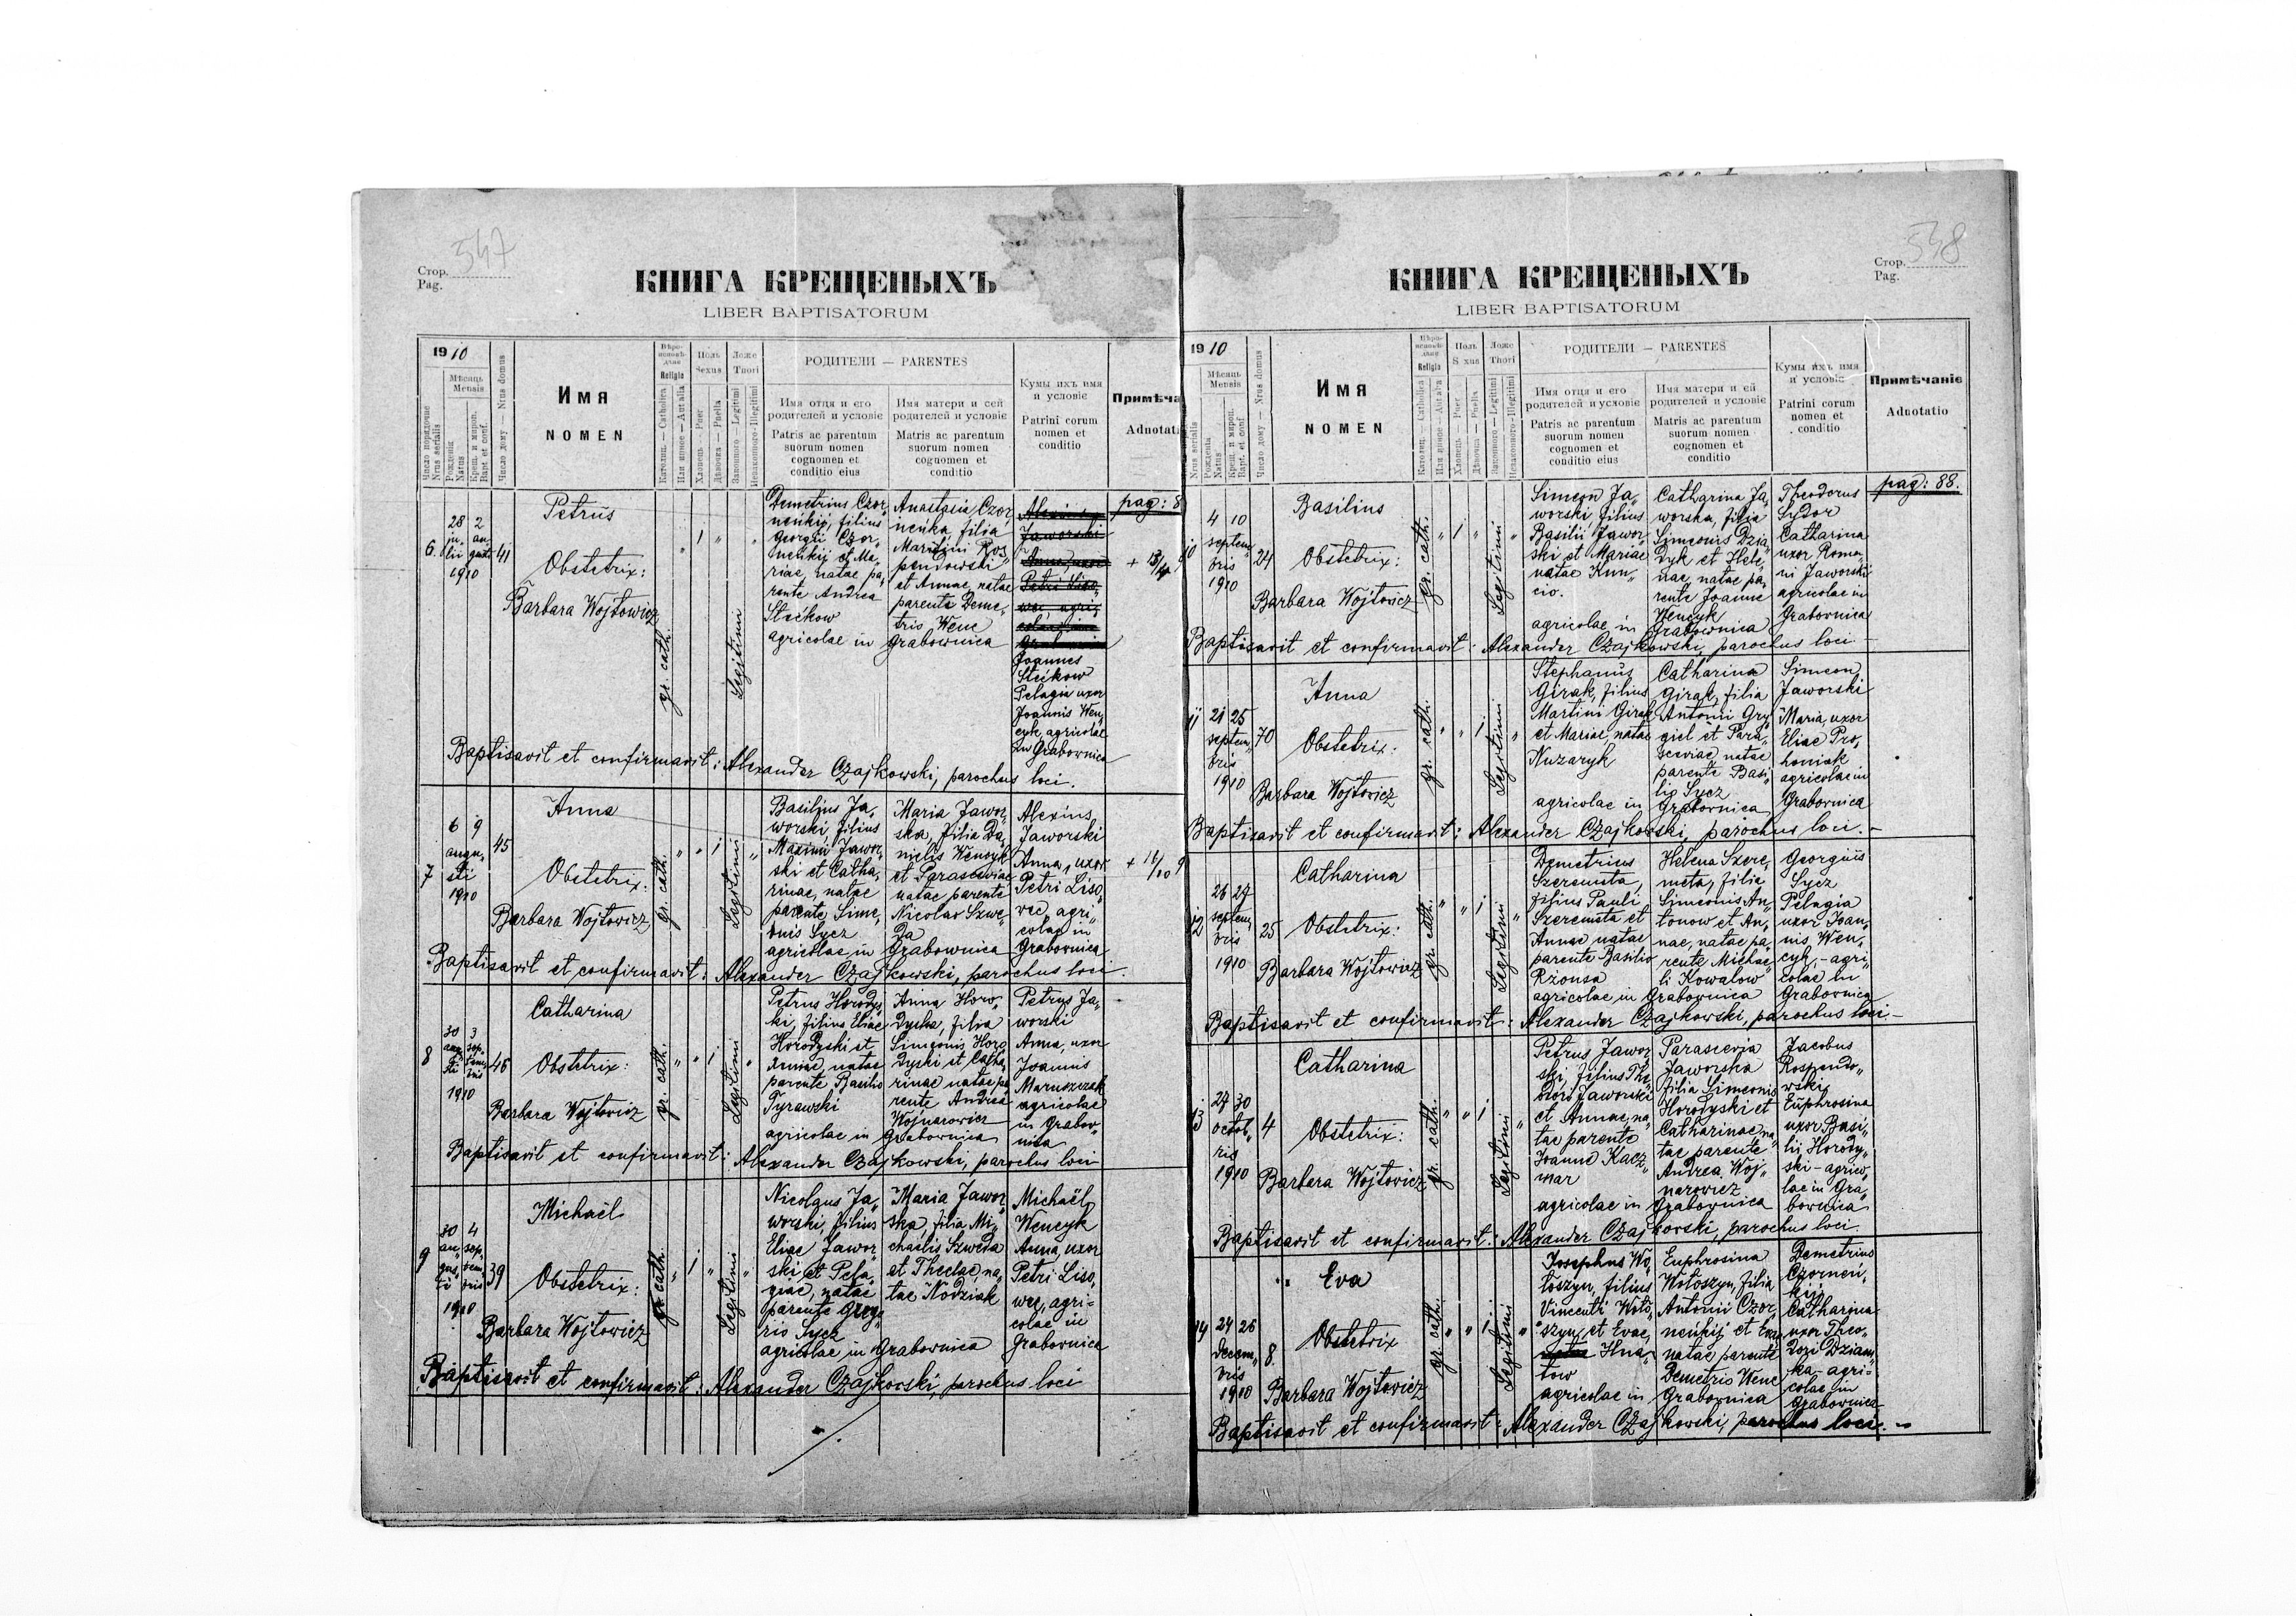 Стор. 547
Pag.
КНИГА КРЕЩЕНЫХЪ
LIBER BAPTISATORUM
1910
Число порядочне
Nrus serialis
Мѣсяць
Mensis
Рожденія
Natus
Крещ. и мѵроп.
Bapt et conf.
Число дому — Nrus domus
Имя
NOMEN
Вѣро-
исповѣ-
даніе
Religia
Католиц. — Catholica
Или инное — Aut alia
Полъ
Sexus
Хлопець — Puer
Дѣвочка — Puella
Ложе
Thori
Законного — Legitimi
Незаконного — Illegitimi
РОДИТЕЛИ — PARENTES
Имя отця и его
родителей и условіе
Patris ac parentum
suorum nomen
cognomen et
conditio eius
Имя матери и сей
родителей и условіе
Matris ac parentum
suorum nomen
cognomen et
conditio
Кумы ихъ имя
и условіе
Patrini eorum
nomen et
conditio
Примѣча
Adnotati
pag: 8
6.
28 2
ju„ au„
lii gusti
1910
41
Petrus
Obstetrix:
Barbara Wojtowicz
gr. cath.
Legitimi
Demetrius Czor„
neńkij, filius
Georgii Czor„
neńkij et Ma„
riae, natae pa„
rente Andrea
Stećkow
agricolae in
Anastasia Czor„
neńka, filia
Martini Ros„
pendowski
et Annae, natae
parente Deme„
trio Wenc
Grabownica
Jaworski
Joannes
Stećkow
Pelagia uxor
Joannis Wen„
cyk, agricolae
in Grabownica
Baptisavit et confirmavit: Alexander Czajkowski, parochus loci.
7
6 9
augu„
sti
1910
45
Anna
Obstetrix:
Barbara Wojtowicz
gr. cath.
Legitimi
Basilius Ja„
worski, filius
Maximi Jawor„
ski et Catha„
rinae, natae
parente Sime„
onis Sycz
agricolae in
Maria Jawor„
ska, filia Da„
nielis Wencyk
et Parasceviae
natae parente
Nicolao Szwe„
da
Grabownica
Alexius
Jaworski
Anna, uxor
Petri Liso„
wec, agri„
colae in
Grabownica
Baptisavit et confirmavit: Alexander Czajkowski, parochus loci.
8
30 3
1910
46
Catharina
Obstetrix:
Barbara Wojtowicz
gr. cath.
Legitimi
Petrus Horodys„
ki, filius Eliae
Horodyski et
Annae, natae
parente Basilio
Tyrawski
agricolae in
Anna Horo„
dyska, filia
Simeonis Horo„
dyski et Catha„
rinae natae pa„
rente Andrea
Wojnarowicz
Grabownica
Petrus Ja„
worski
Anna, uxor
Joannis
Maruszczak
agricolae
in Grabow„
nica
Baptisavit et confirmavit: Alexander Czajkowski, parochus loci
9
30 4
au„ sep„
gus„ tem„
ti bris
1910
39
Michaël
Obstetrix:
Barbara Wojtowicz
gr. cath.
Legitimi
Nicolaus Ja„
worski, filius
Eliae Jawor„
ski et Pela„
giae, natae
parente Grego„
rio Sycz
agricolae in
Maria Jawor„
ska, filia Mi„
chaëlis Szweda
et Theclae, na„
tae Nodziak
Grabownica
Michaël
Wencyk
Anna, uxor
Petri Liso„
wec, agri=
colae in
Grabownica
Baptisavit et confirmavit: Alexander Czajkowski, parochus loci
Стор. 548
Pag.
КНИГА КРЕЩЕНЫХЪ
LIBER BAPTISATORUM
1910
Nrus serialis
Мѣсяць
Mensis
Рожденія
Natus
Крещ. и мѵроп.
Bapt. et conf.
Число дому — Nrus domus
Имя
NOMEN
Вѣро-
исповѣ-
даніе
Religia
Католиц. — Catholica
Или инное — Aut alia
Полъ
S xus
Хлопець — Puer
Дѣвочка — Puella
Ложе
Thori
Законного — Legitimi
Незаконного — Illegitimi
РОДИТЕЛИ — PARENTES
Имя отця и его
родителей и условіе
Patris ac parentum
suorum nomen
cognomen et
conditio eius
Имя матери и ей
родителей и условіе
Matris ac parentum
suorum nomen
cognomen et
conditio
Кумы ихъ имя
и условіе
Patrini eorum
nomen et
conditio
Примѣчаніе
Adnotatio
pag: 88.
10
4 10
septem„
bris
1910
24
Basilius
Obstetrix:
Barbara Wojtowicz
gr. cath.
Legitimi
Simeon Ja„
worski, filius
Basilii Jawor„
ski et Mariae
natae Kun„
cio.
agricolae in
Catharina Ja„
worska, filia
Simeonis Dzia„
dyk et Hele„
nae, natae pa„
rente Joanne
Wencyk
Grabownica
Theodorus
Sydor
Catharina
uxor Roma„
ni Jaworski
agricolae in
Grabownica
Baptisavit et confirmavit: Alexander Czajkowski, parochus loci —
11
21 25
septem„
bris
1910
70
Anna
Obstetrix:
Barbara Wojtowicz
gr. cath.
Legitimi
Stephanus
Girak, filius
Martini Girak
et Mariae, natae
Nuzaryk
agricolae in
Catharina
Girak, filia
Antonii Gry„
giel et Para„
sceviae natae
parente Basi„
lio Sycz
Grabownica
Simeon
Jaworski
Maria, uxor
Eliae Pro„
honiak
agricolae in
Grabownica
Baptisavit et confirmavit: Alexander Czajkowski, parochus loci. —
12
26 27
septem„
bris
1910
25
Catharina
Obstetrix:
Barbara Wojtowicz
gr. cath.
Legitimi
Demetrius
Szeremeta,
filius Pauli
Szeremeta et
Annae natae
parente Basilio
Rżonsa
agricolae in
Helena Szere„
meta, filia
Simeonis An„
tonow et An„
nae, natae pa„
rente Michae„
li Kowalow
Grabownica
Georgius
Sycz
Pelagia
uxor Joan„
nis Wen„
cyk, - agri„
colae in
Grabownica
Baptisavit et confirmavit: Alexander Czajkowski, parochus loci —
13
27 30
octob„
ris
1910
4
Catharina
Obstetrix:
Barbara Wojtowicz
gr. cath.
Legitimi
Petrus Jawor„
ski, filius The„
dori Jaworski
et Annae, na„
tae parente
Joanne Kacz„
mar
agricolae in
Parascevia
Jaworska
filia Simeonis
Horodyski et
Catharinae, na„
tae parente
Andrea Woj„
narowicz
Grabownica
Jacobus
Rospendo„
wski
Euphrosina
uxor Basi„
lii Horody„
ski - agrico„
lae in Gra„
bownica
Baptisavit et confirmavit: Alexander Czajkowski, parochus loci.
14
24 26
decem„
bris
1910
8.
Eva
Obstetrix
Barbara Wojtowicz
gr. cath.
Legitimi
Josephus Wo„
łoszyn, filius
Vincenti Woło„
szyn, et Evae,
Hna„
tow
agricolae in
Euphrosina
Wołoszyn, filia
Antonii Czor„
neńkij et Evae
natae parente
Demetrio Wenc
Grabownica
Demetrius
Czorneń„
kij
Catharina
uxor Theo„
dozi Dziam„
ka - agri=
colae in
Grabownica
Baptisavit et confirmavit: Alexander Czajkowski, parochus loci. —